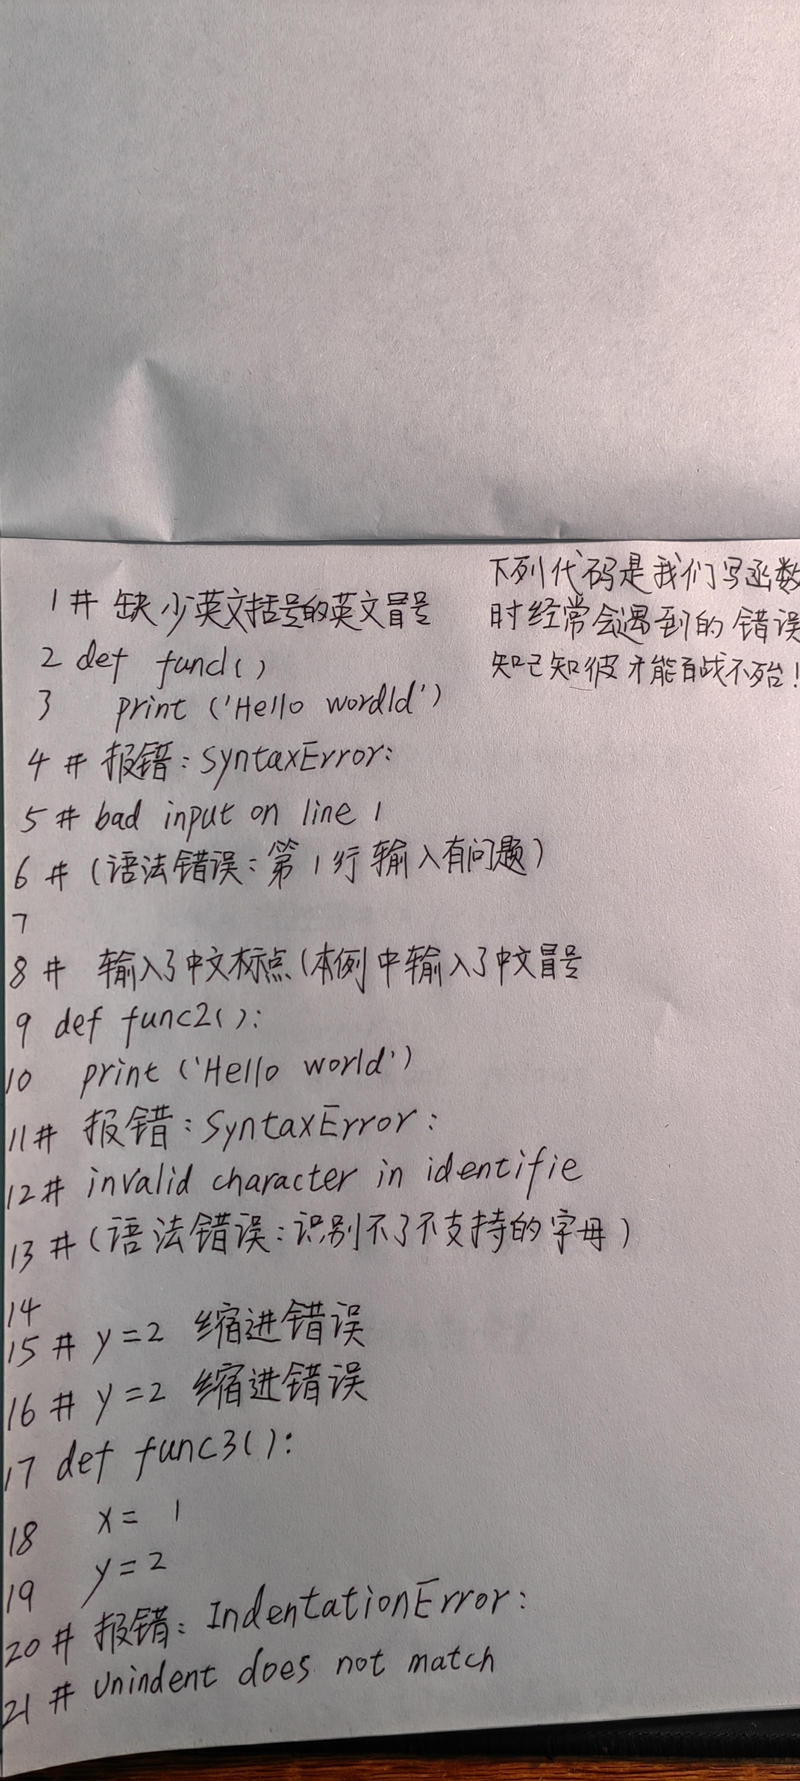 下列代码是我们写函数
时经常会遇到的错误
知己知彼才能百战不殆!
1 # 缺少英文括号的英文冒号
2 def func1()
3 print ('Hello wordld')
4 # 报错: SyntaxError:
5 # bad input on line 1
6 # (语法错误: 第1行输入有问题)
7
8 # 输入了中文标点(本例中输入了中文冒号
9 def func2():
10 print ('Hello world')
11 # 报错: SyntaxError:
12 # invalid character in identifie
13 # (语法错误: 识别不了不支持的字母)
14
15 # y=2 缩进错误
16 # y=2 缩进错误
17 def func3():
18 x= 1
19 y=2
20 # 报错: IndentationError:
21 # Unindent does not match